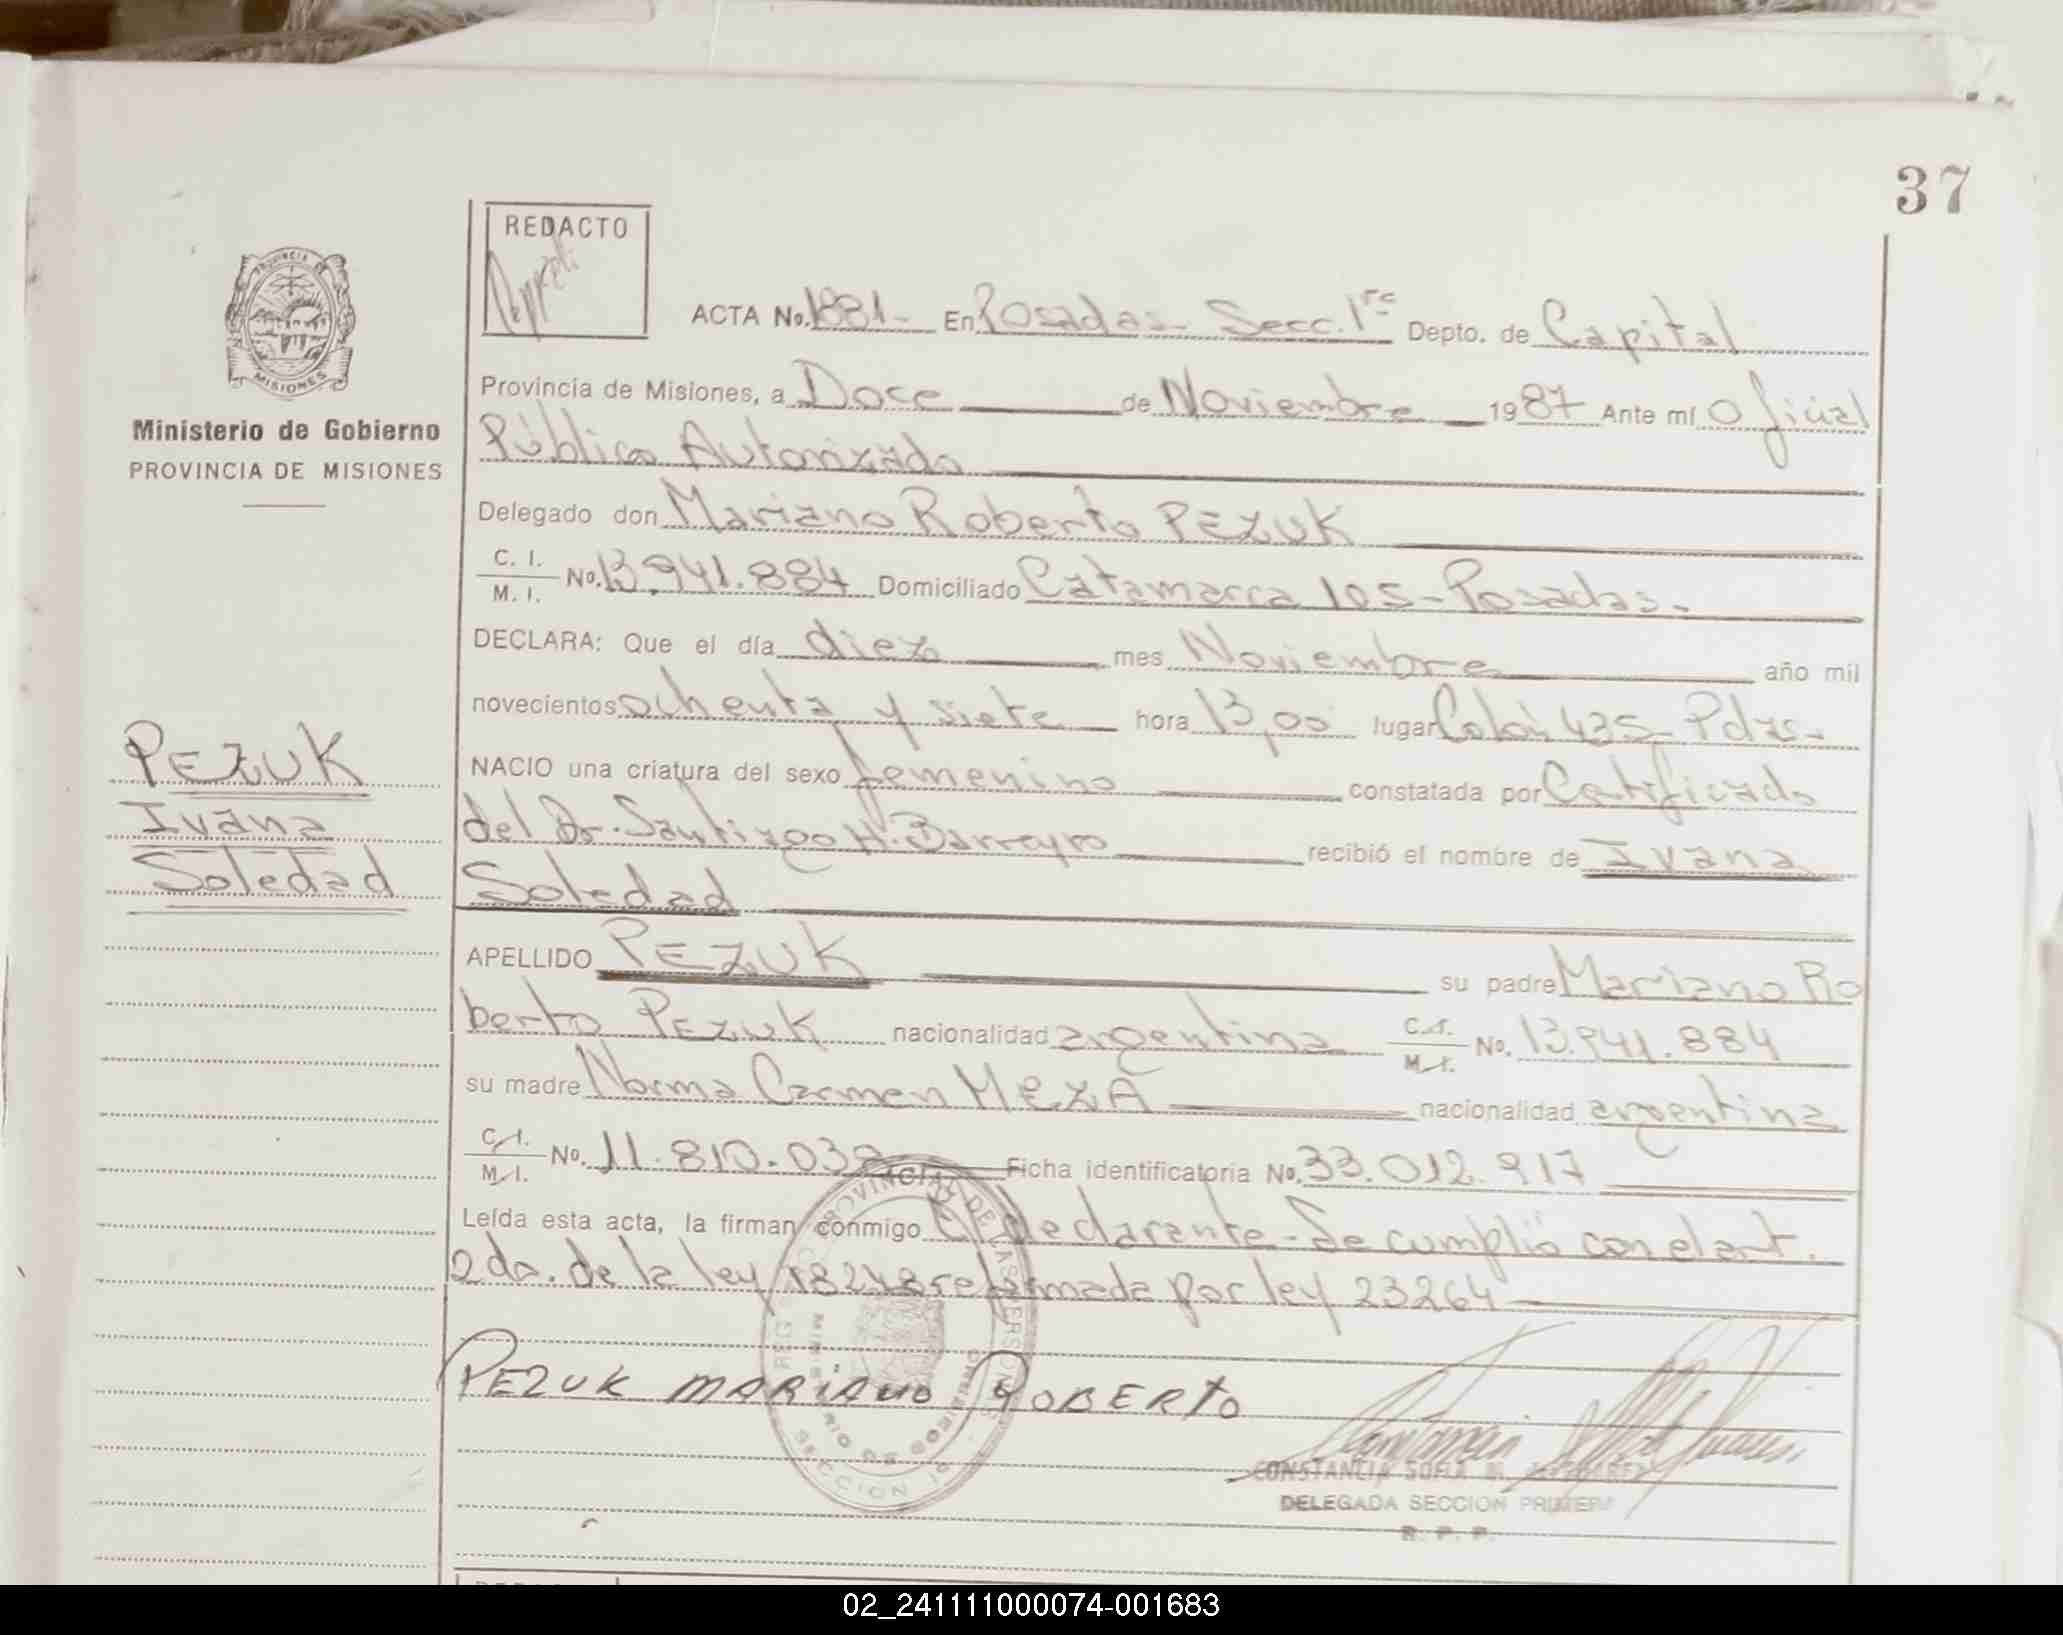 37
REDACTO
PROVINCIA DE
MISIONES
Ministerio de Gobierno
PROVINCIA DE MISIONES
ACTA No. 1881- En Posadas- Secc. 1ra Depto. de Capital
Provincia de Misiones, a Doce de Noviembre 1987 Ante mí Oficial
Público Autorizado
Delegado don Mariano Roberto PEZUK
C. I.
M. I. No. 13.941.884 Domiciliado Catamarca 105-Posadas-
DECLARA: Que el día diez mes Noviembre año mil
novecientos ochenta y siete hora 13,00 lugar Colón 435- Pdas-
NACIO una criatura del sexo femenino constatada por Certificado
del Dr. Santiago H. Barreyro recibió el nombre de Ivana
Soledad
PEZUK
Ivana
Soledad
APELLIDO PEZUK su padre Mariano Ro
berto PEZUK nacionalidad argentina C.I. M.I. No. 13.941.884
su madre Norma Carmen MEZA nacionalidad argentina
C.I. M.I. No. 11.810.03 Ficha identificatoria No. 33.012.917
Leída esta acta, la firman conmigo el declarante-Se cumplió con el art.
2do. de la ley 18248 reformada por ley 23264
PEZUK MARIANO ROBERTO
CONSTANCIA SOFIA
DELEGADA SECCION PRIMERA
R. P. P.
02_241111000074-001683